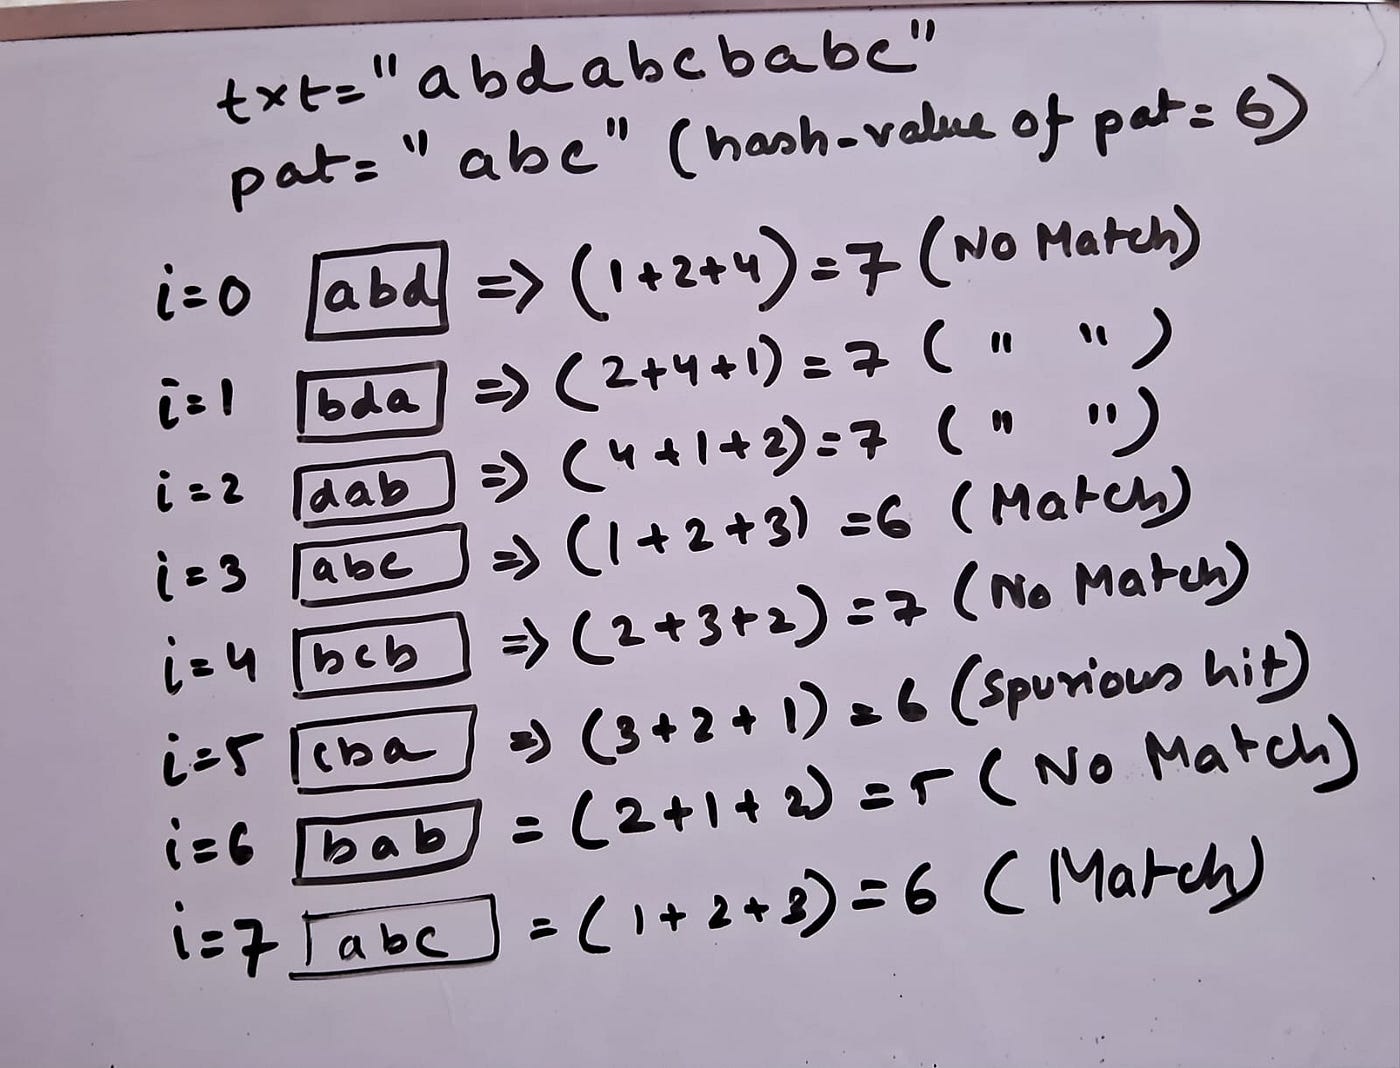 txt="abdabcbabc"
pat="abc" (hash-value of pat=6)
i=0 abd => (1+2+4)=7 (No Match)
i=1 bda => (2+4+1)=7 (" ")
i=2 dab => (4+1+2)=7 (" ")
i=3 abc => (1+2+3)=6 (Match)
i=4 bcb => (2+3+2)=7 (No Match)
i=5 cba => (3+2+1)=6 (Spurious hit)
i=6 bab = (2+1+2)=5 (No Match)
i=7 abc = (1+2+3)=6 (Match)